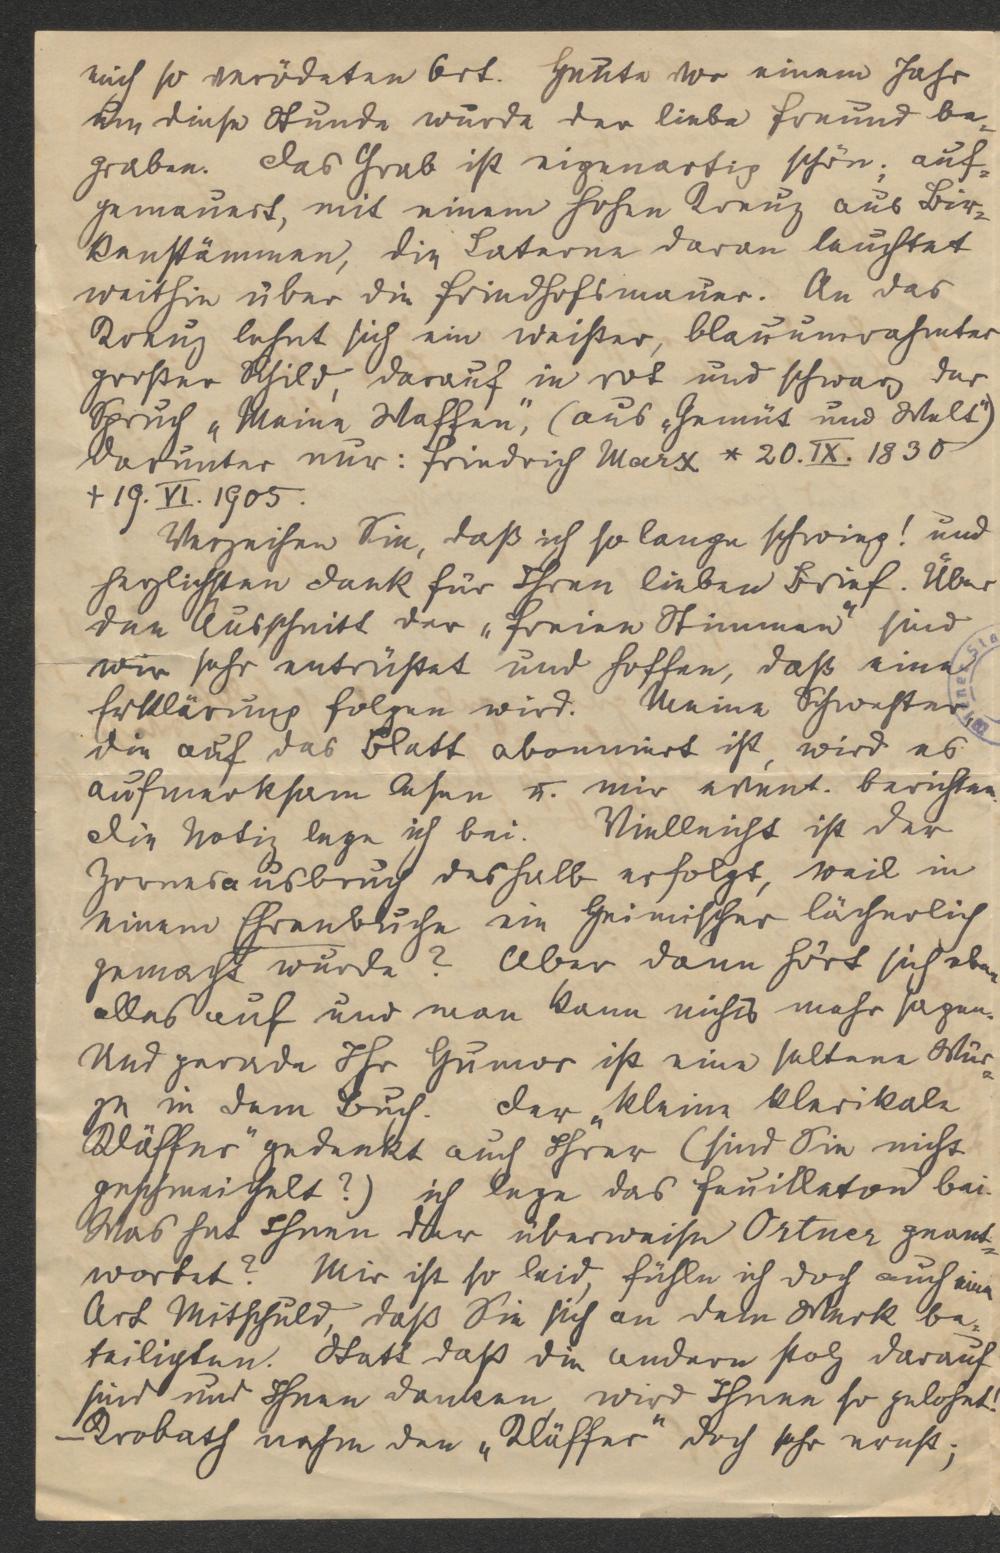 mich so verödeten Ort. Heute vor einem Jahr
um diese Stunde wurde der liebe Freund be=
graben. Das Grab ist eigenartig schön; auf=
gemauert, mit einem hohen Kreuz aus Bir=
kenstämmen, die Laterne daran leuchtet
weithin über die Friedhofsmauer. An das
Kreuz lehnt sich ein weißer, blauumrahmter
großer Schild, darauf in rot und schwarz der
Spruch „Meine Waffen", (aus „Gemüt und Welt")
darunter nur: Friedrich Marx * 20. IX. 1830
+ 19. VI. 1905.
Verzeihen Sie, daß ich so lange schwieg! und
herzlichsten Dank für Ihren lieben Brief. Über
den Ausschnitt der „Freien Stimmen" sind
wir sehr entrüstet und hoffen, daß eine
Erklärung folgen wird. Meine Schwester
die auf das Blatt abonniert ist, wird es
aufmerksam lesen u. mir event. berichten.
Die Notiz lege ich bei. Vielleicht ist der
Zornesausbruch deshalb erfolgt, weil in
einem Ehrenbuche ein Heimischer lächerlich
gemacht wurde? Aber dann hört sich eben
alles auf und man kann nichts mehr sagen.
Und gerade Ihr Humor ist eine seltene Wür=
ze in dem Buch. Der „kleine klerikale
Kläffer" gedenkt auch Ihrer (sind Sie nicht
geschmeichelt?) ich lege das Feuilleton bei.
Was hat Ihnen der überweise Ortner geant=
wortet? Mir ist so leid, fühle ich doch auch eine
Art Mitschuld, daß Sie sich an dem Werk be=
teiligten. Statt daß die andern stolz darauf
sind und Ihnen danken, wird Ihnen so gelohnt!
– Krobath nahm den „Kläffer" doch sehr ernst;